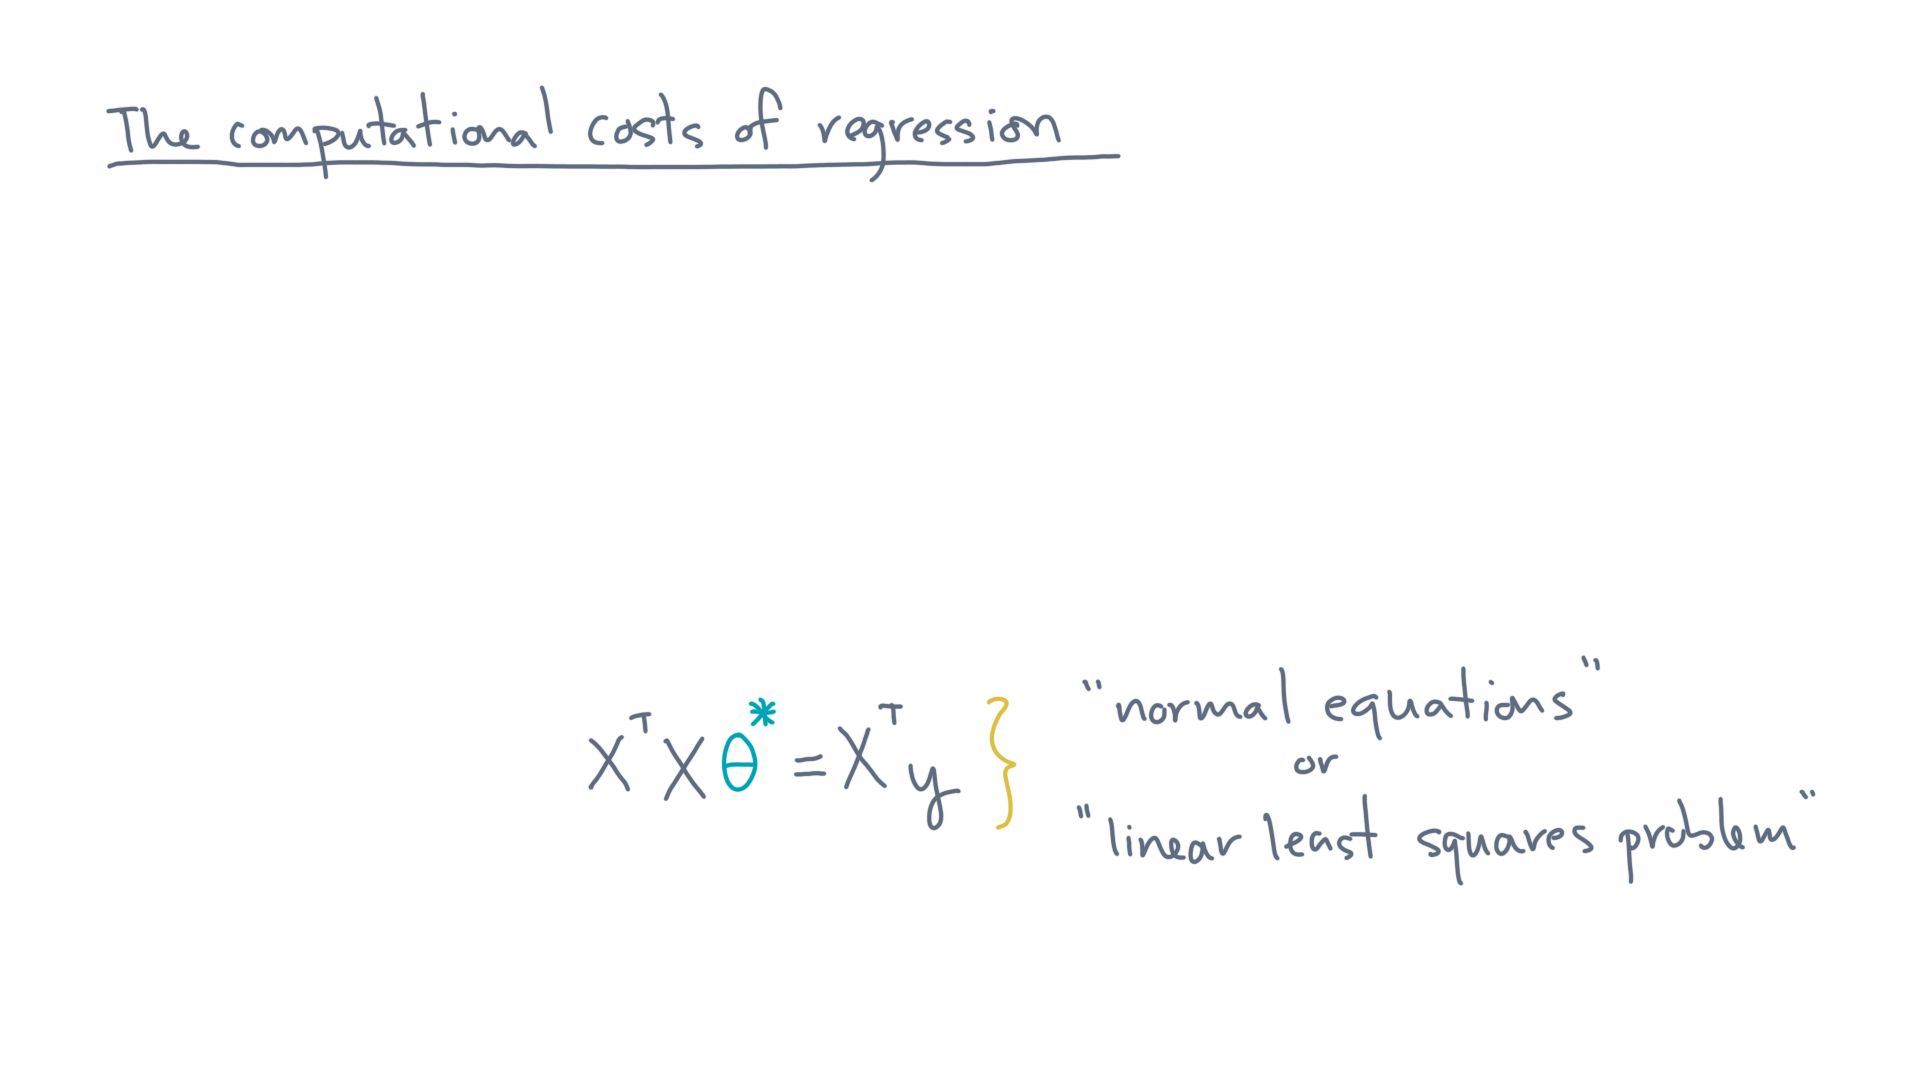 The computational costs of regression
"normal equations"
XᵀXθ* = Xᵀy } or
"linear least squares problem"